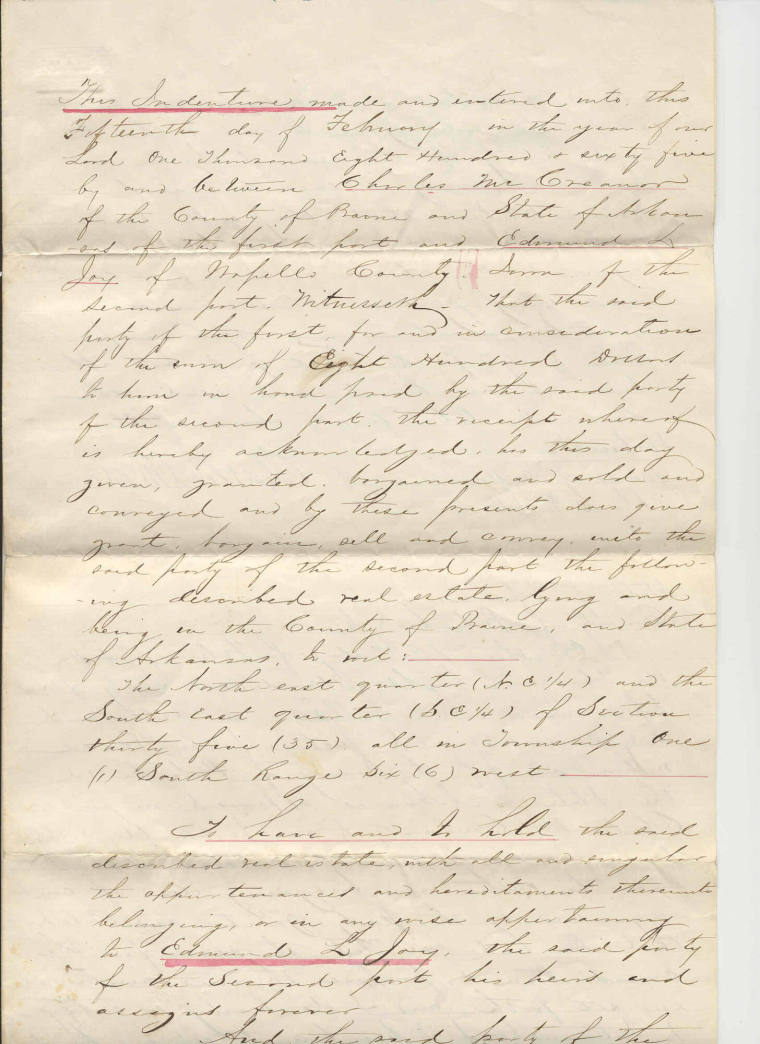 This Indenture, made and entered into, this
Fifteenth day of February in the year of our
Lord One Thousand Eight Hundred & sixty five
by and between Charles McCreanor
of the County of Prairie and State of Arkan
-sas of the first part and Edmund L
Joy of Wapello County, Iowa of the
second part. Witnesseth - That the said
party of the first, for and in consideration
of the sum of Eight Hundred Dollars
to him in hand paid by the said party
of the second part. the receipt whereof
is hereby acknowledged, has this day
given, granted, bargained and sold and
conveyed and by these presents does give
grant, bargain, sell and convey, unto the
said party of the second part the follow-
-ing described real estate. lying and
being in the County of Prairie, and State
of Arkansas, to wit:
The North east quarter (N.E 1/4) and the
South East quarter (S E 1/4) of Section
thirty five (35) all in Township One
(1) South Range Six (6) west
To have and to hold the said
described real estate, with all and singular
the appurtenances and hereditaments thereunto
belonging, or in any wise appertaining
to Edmund L Joy, the said party
of the Second part his heirs and
assigns forever
And the said party of the